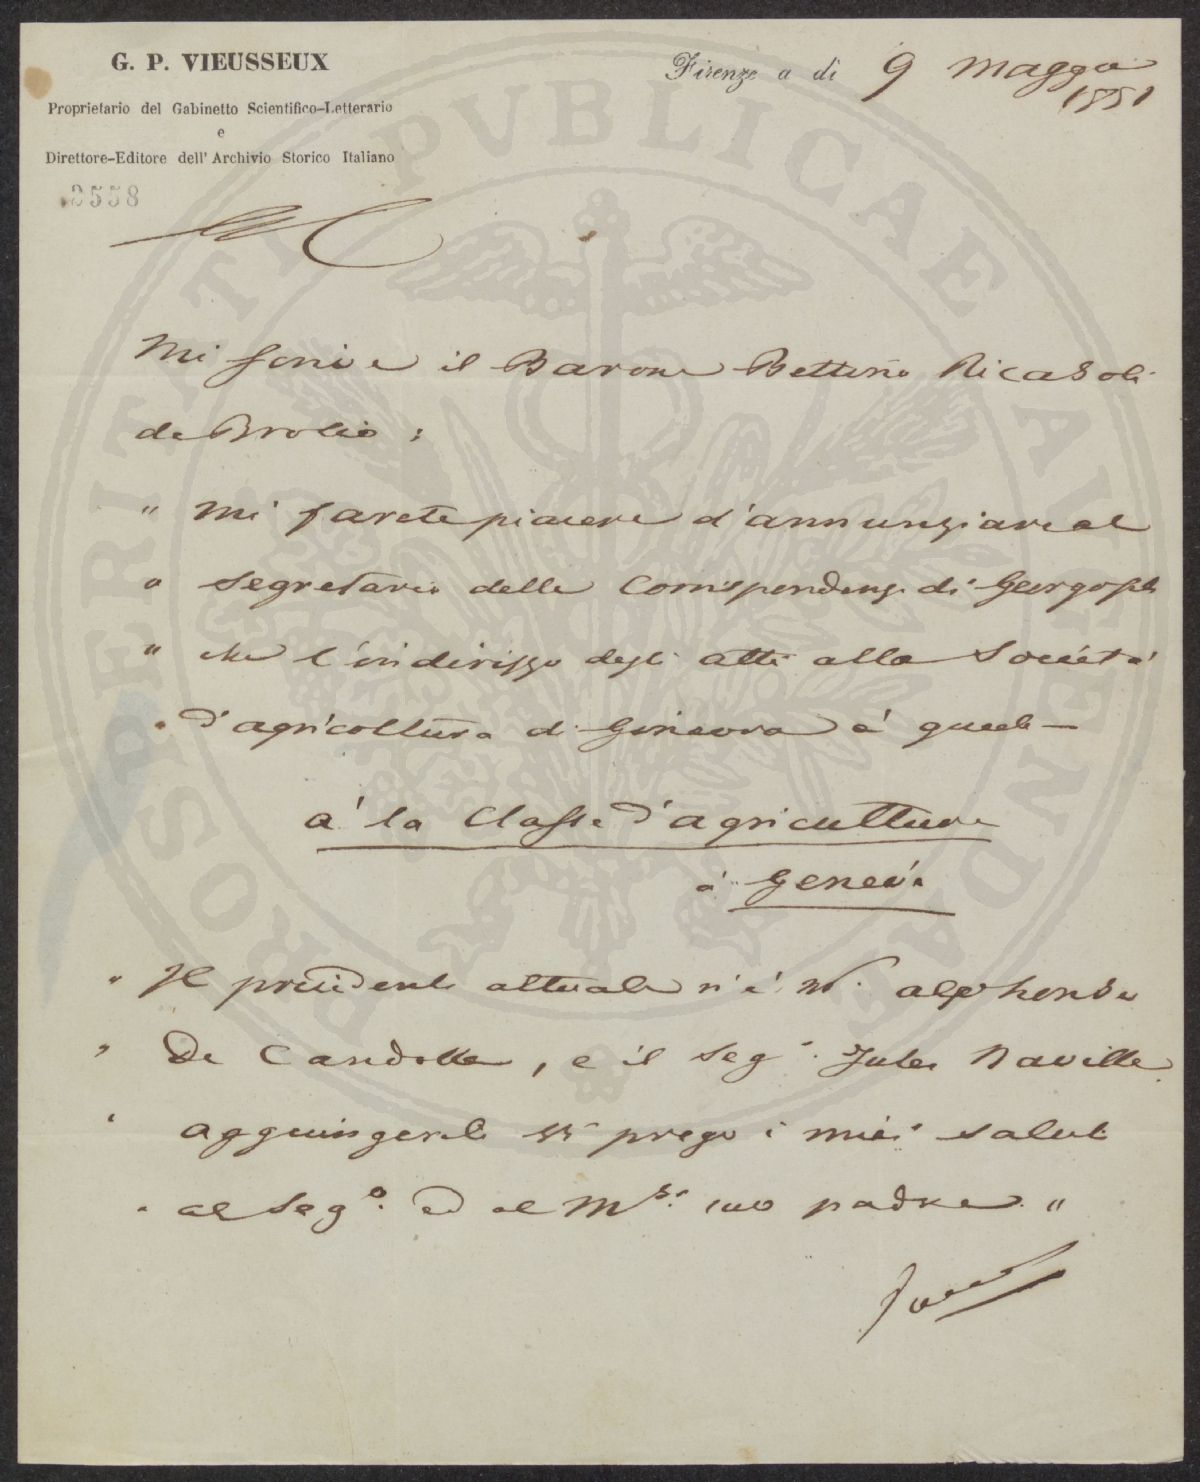 G. P. VIEUSSEUX
Proprietario del Gabinetto Scientifico-Letterario
e
Direttore-Editore dell' Archivio Storico Italiano
2558
Firenze a dì 9 Maggio
1851
PROSPERITATI PUBLICAE AUGENDAE
Mi scrive il Barone Bettino Ricasoli
da Brolio:
" Mi farete piacere d'annunziare al
" segretario delle Corrispondenze di Georgofili
" che l'indirizzo degli atti alla Società
" d'agricoltura di Ginevra è quello
à la Classe d'agriculture
à Genève
" Il presidente attuale n'è Mr. Alphonse
" De Candolle, e il Segr. Jules Naville
" aggiungerete vi prego i miei saluti
" al Sego. ed al Mse. suo padre "